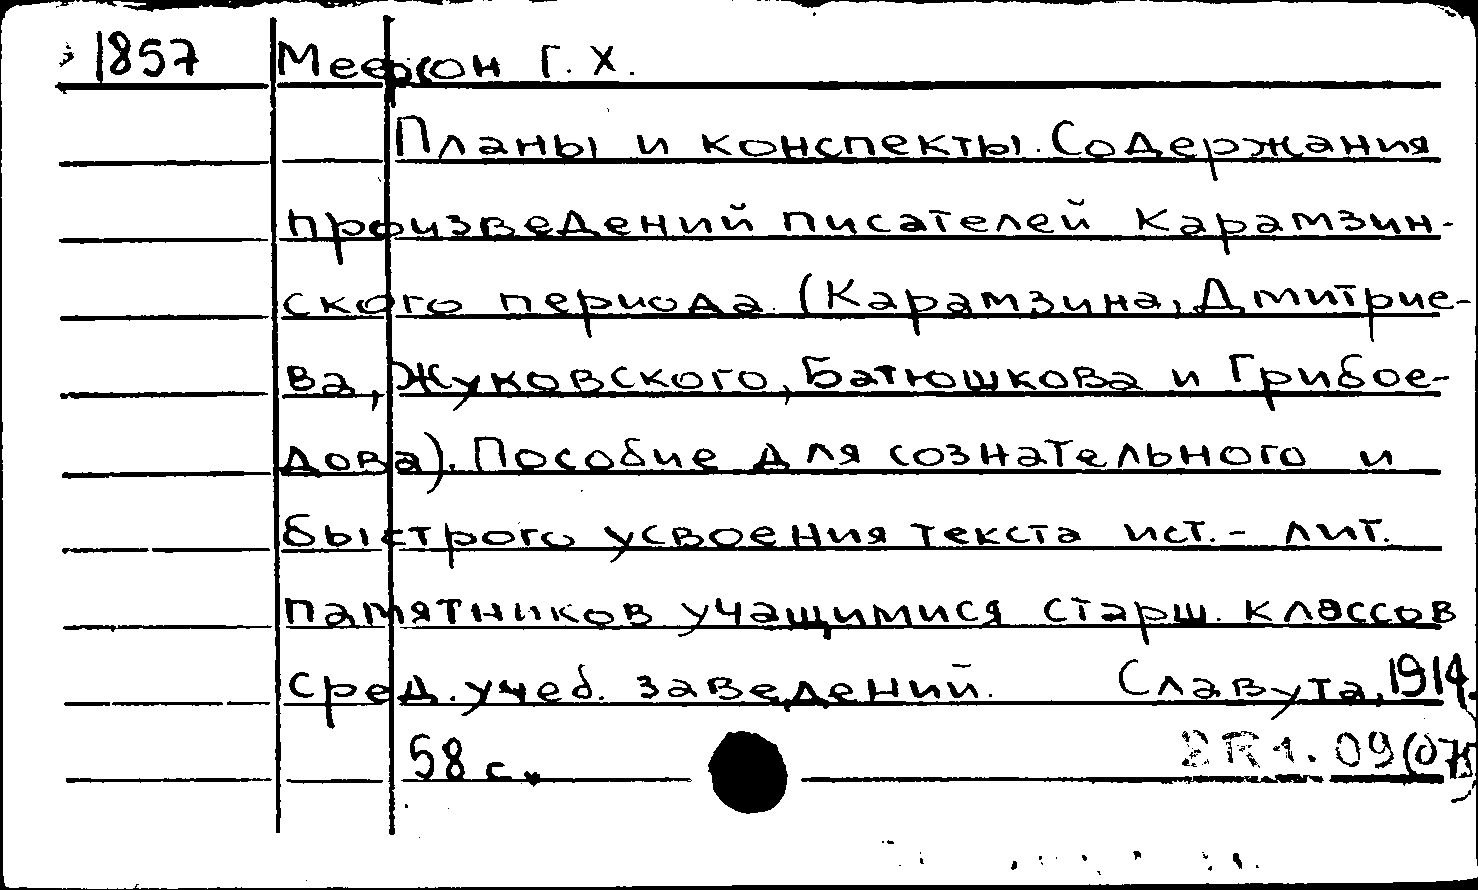 1857 Меерсон Г. Х.
Планы и конспекты. Содержания
произведений писателей Карамзин-
ского периода (Карамзина, Дмитрие-
ва, Жуковского, Батюшкова и Грибое-
дова). Пособие для сознательного и
быстрого усвоения текста ист.- лит.
памятников учащимися старш. классов
сред. учеб. заведений. Славута, 1914.
58 с. 2R1.09(075